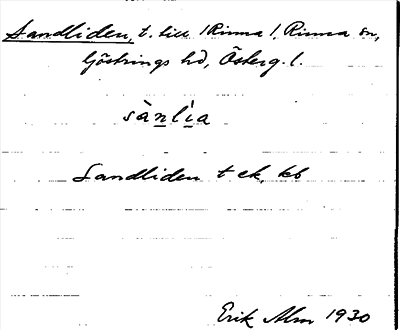 Sandliden, t. till /Rinna/, Rinna sn,
Göstrings hd, Österg. l.
sànlìa
Sandliden t ek, kb
Erik Alm 1930